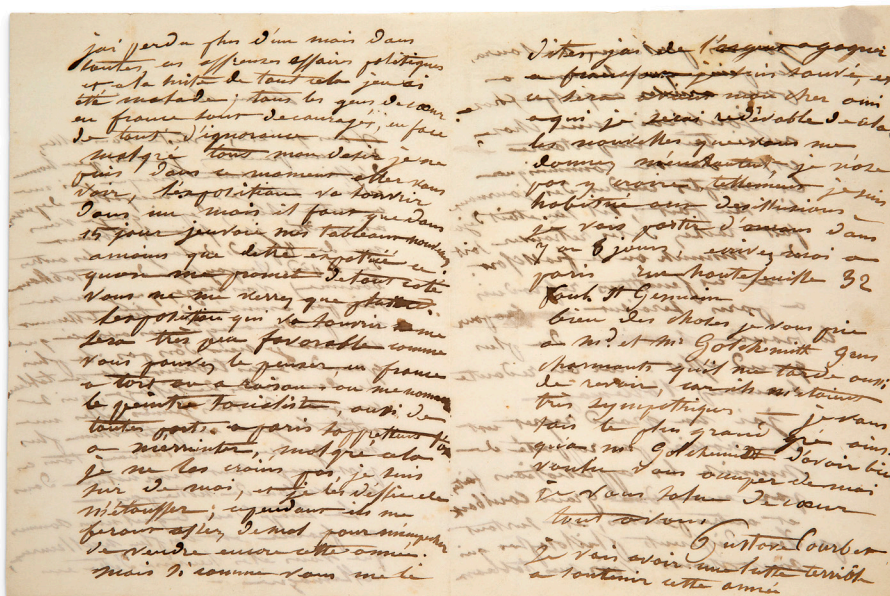 jai perdu plus d'un mois dans
toutes ces affreuses affaires politiques
et a la suite de tout cela jeu ai
été malade; tous les gens de cœur
en france sont decouragés, en face
de tant d'ignorance
malgré tous mon desir je ne
puis dans ce moment aller vous
voir, l'exposition va souvrir
dans un mois il faut que dans
15 jour jenvoie mes tableaux nouveaux
amoins que detre expatrié ce
quon me promet de tout coté
vous ne me verrez que
Lexposition qui va souvrir a me
sera tres peu favorable comme
vous pouvez le penser, en france
a tort ou a raison on me nomme
le peintre socialiste, aussi de
toutes parts a paris sapprettent
a mereinter, malgré cela
je ne les crains pas je suis
sur de moi, et je les deffie de
m'etouffer; cependant ils me
feront assez de mal pour mempecher
de vendre encore cette année.
mais si comme vous me le
dites jai de l' a gagner
a francfort je suis sauvé, et
ce sera mon cher ami
a qui je serai redevable de cela
les nouvelles que vous me
donnez je nose
pas y croire tellement je suis
habitué aux desillusions
je vais partir d' dans
7 a 8 jours ecrivez moi a
paris rue hautefeuille 32
faub. St Germain
bien des choses je vous prie
a Md. et Mr Golchsmith gens
charmants quil me tarde aussi
de revoir, car ils métaient
tres sympathiques — je vous
sais le plus grand gré ainsi
qua mr Golchsmidth davoir bien
voulu vous occuper de moi
je vous salue de cœur
tout a vous,
Gustave Courbet
Je vais avoir une lutte terrible
a soutenir cette année